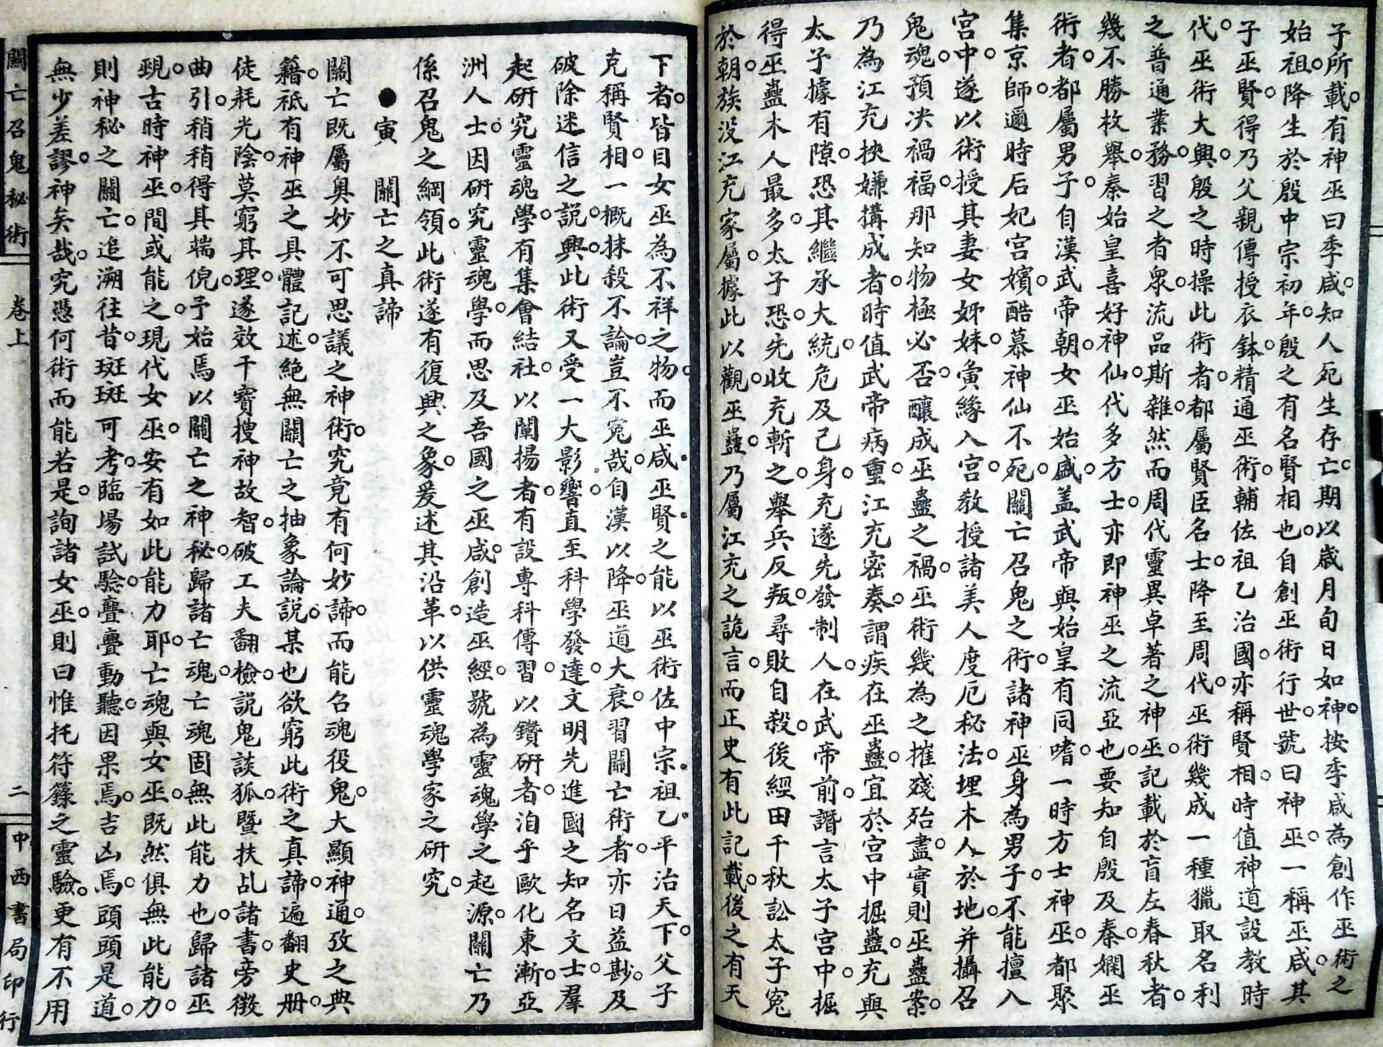 子所載有神巫曰季咸知人死生存亡期以歲月旬日如神按季咸為創作巫術之
始祖降生於殷中宗初年殷之有名賢相也自創巫術行世號曰神巫一稱巫咸其
子巫賢得乃父親傳授衣鉢精通巫術輔佐祖乙治國亦稱賢相時值神道設教時
代巫術大興殷之時操此術者都屬賢臣名士降至周代巫術幾成一種獵取名利
之普通業務習之者眾流品斯雜然而周代靈異卓著之神巫記載於盲左春秋者
幾不勝枚舉秦始皇喜好神仙代多方士亦即神巫之流亞也要知自殷及秦嫻巫
術者都屬男子自漢武帝朝女巫始盛盖武帝與始皇有同嗜一時方士神巫都聚
集京師邇時后妃宮嬪酷慕神仙不死關亡召鬼之術諸神巫身為男子不能擅入
宮中遂以術授其妻女姊妹夤緣入宮教授諸美人度厄秘法埋木人於地并攝召
鬼魂預決禍福那知物極必否釀成巫蠱之禍巫術幾為之摧殘殆盡實則巫蠱案
乃為江充挾嫌搆成者時值武帝病重江充密奏謂疾在巫蠱宜於宮中掘蠱充與
太子據有隙恐其繼承大統危及己身充遂先發制人在武帝前譖言太子宮中掘
得巫蠱木人最多太子恐先收充斬之舉兵反叛尋敗自殺後經田千秋訟太子冤
於朝族沒江充家屬據此以觀巫蠱乃屬江充之詭言而正史有此記載後之有天
下者皆目女巫為不祥之物而巫咸巫賢之能以巫術佐中宗祖乙平治天下父子
克稱賢相一概抹殺不論豈不冤哉自漢以降巫道大衰習關亡術者亦日益尠及
破除迷信之說興此術又受一大影響直至科學發達文明先進國之知名文士羣
起研究靈魂學有集會結社以闡揚者有設專科傳習以鑽研者洎乎歐化東漸亞
洲人士因研究靈魂學而思及吾國之巫咸創造巫經號為靈魂學之起源關亡乃
係召鬼之綱領此術遂有復興之象爰述其沿革以供靈魂學家之研究
●寅　關亡之真諦
關亡既屬奧妙不可思議之神術究竟有何妙諦而能召魂役鬼大顯神通攷之典
籍祇有神巫之具體記述絕無關亡之抽象論說某也欲窮此術之真諦遍翻史册
徒耗光陰莫窮其理遂效干寶搜神故智破工夫翻檢說鬼談狐暨扶乩諸書旁徵
曲引稍稍得其端倪予始焉以關亡之神秘歸諸亡魂亡魂固無此能力也歸諸巫
覡古時神巫間或能之現代女巫安有如此能力耶亡魂與女巫既然俱無此能力
則神秘之關亡追溯往昔斑斑可考臨場試驗亹亹動聽因果焉吉凶焉頭頭是道
無少差謬神矣哉究憑何術而能若是詢諸女巫則曰惟托符籙之靈驗更有不用
關亡召鬼秘術　卷上　二　中西書局印行